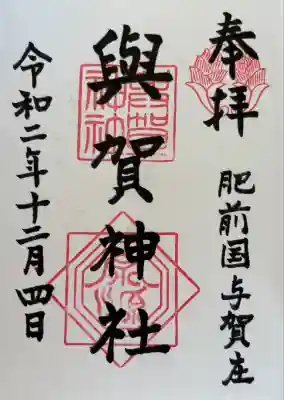 奉拝
肥前国与賀庄
與賀神社
令和二年十二月四日